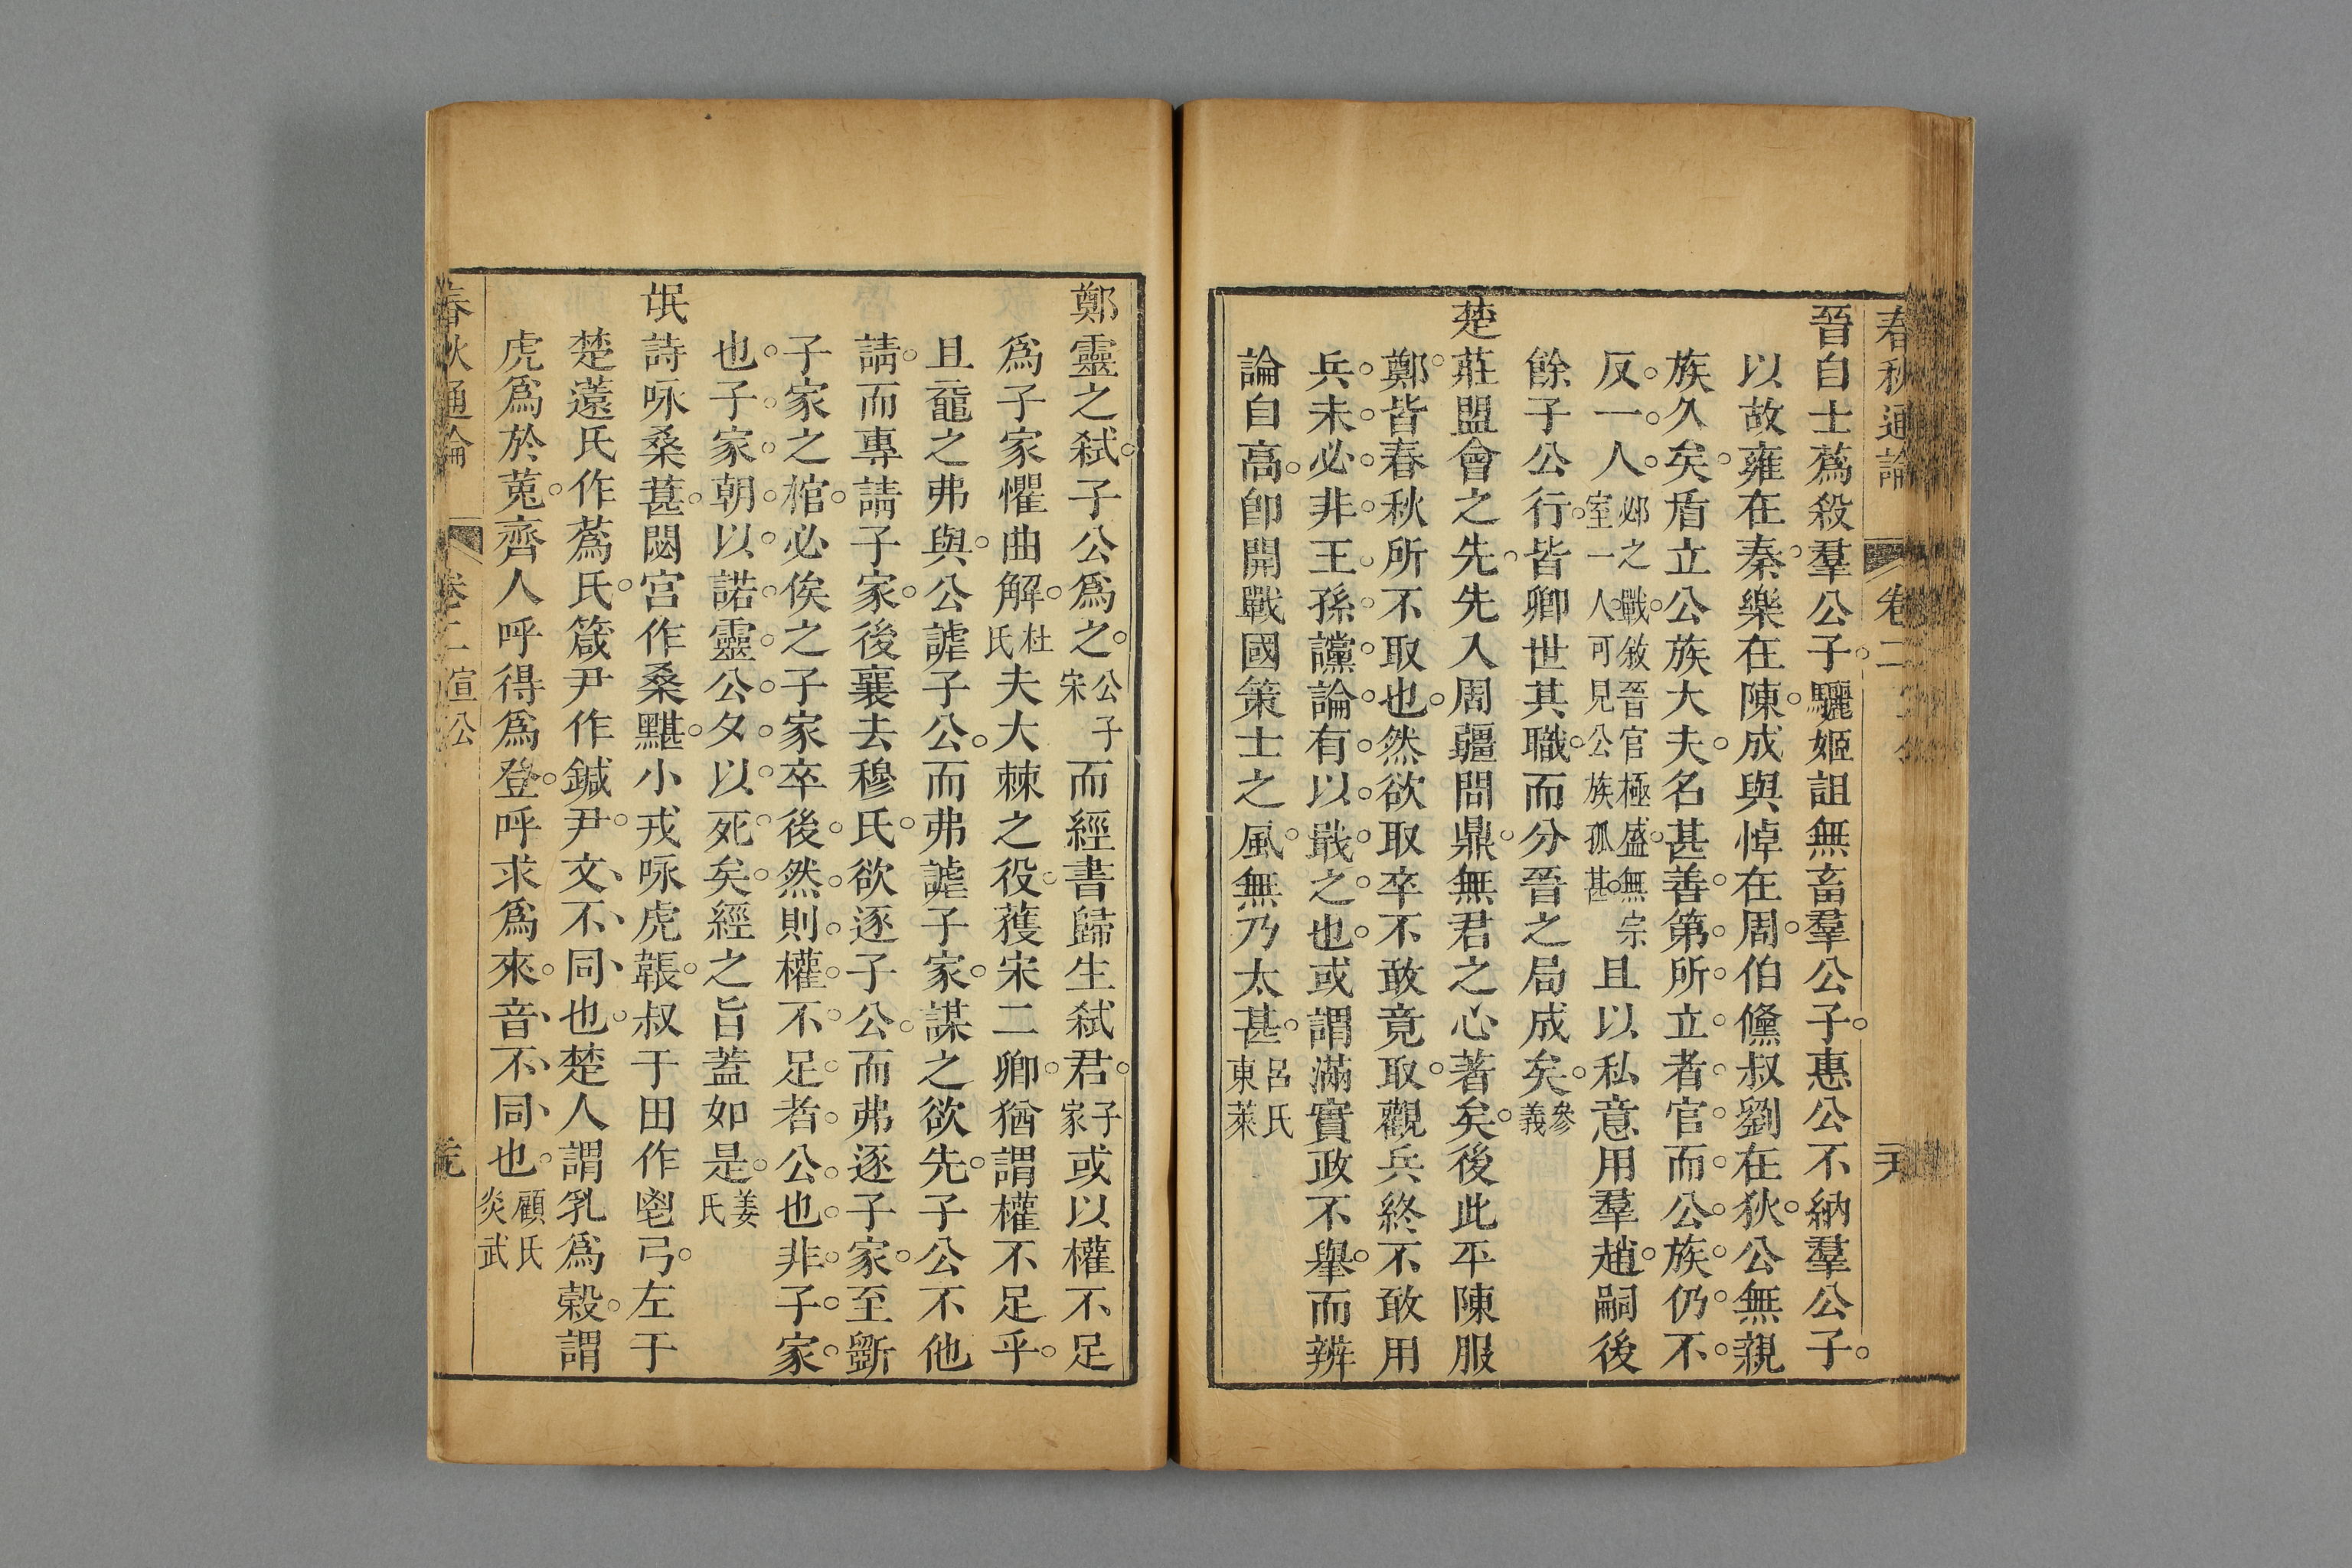 春秋通論 卷二
晉自士蔿殺羣公子驪姬詛無畜羣公子惠公不納羣公子
以故雍在秦樂在陳成與悼在周伯儵叔劉在狄公無親
族久矣盾立公族大夫名甚善第所立者官而公族仍不
反一人邲之戰敘晉官極盛無宗室一人可見公族孤甚且以私意用羣趙嗣後
餘子公行皆卿世其職而分晉之局成矣參義
楚莊盟會之先先入周疆問鼎無君之心著矣後此平陳服
鄭皆春秋所不取也然欲取卒不敢竟取觀兵終不敢用
兵未必非王孫讜論有以戢之也或謂滿實政不舉而辨
論自高卽開戰國策士之風無乃太甚呂氏東萊
鄭靈之弒子公爲之公子宋而經書歸生弒君子家或以權不足
爲子家懼曲解杜氏夫大棘之役獲宋二卿猶謂權不足乎
且黿之弗與公謔子公而弗謔子家謀之欲先子公不他
請而專請子家後襄去穆氏欲逐子公而弗逐子家至斲
子家之棺必俟之子家卒後然則權不足者公也非子家
也子家朝以諾靈公夕以死矣經之旨蓋如是姜氏
氓詩咏桑葚閟宮作桑黮小戎咏虎韔叔于田作鬯弓左于
楚薳氏作蔿氏箴尹作鍼尹文不同也楚人謂乳爲榖謂
虎爲於菟齊人呼得爲登呼求爲來音不同也顧氏炎武
春秋通論 卷二 宣公